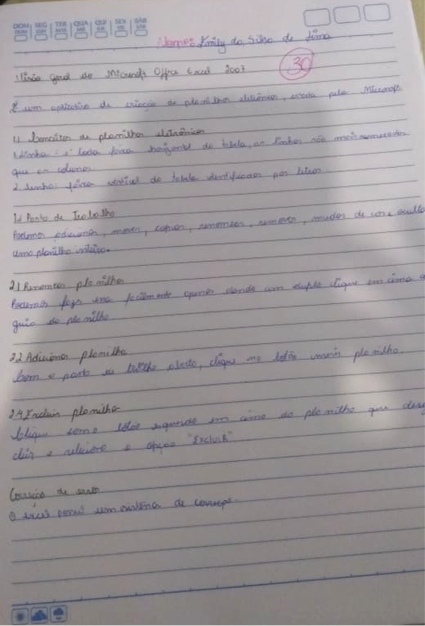 DOM SEG TER QUA QUI SEX SÁB
Nome: Emily da Silva de Lima
30
Visão geral do Microsoft Office Excel 2007
É um aplicativo de criação de planilhas eletrônicas, criada pela Microsoft
1.1 Conceitos de planilhas eletrônicas
Linha: é toda faixa horizontal da tabela, as linhas são numeradas
que as colunas
2. faixa vertical da tabela identificadas por letras.
1.2 Pasta de Trabalho
Podemos adicionar, mover, copiar, renomear, remover, mudar de cor e
uma planilha
2.1 Renomear planilha
Podemos facilmente apenas dando um duplo clique em cima
guia da planilha
2.2 Adicionar planilha
Com a pasta de trabalho aberta, clique no botão inserir planilha.
2.4 Excluir planilha
Clique com o botão esquerdo em cima da planilha que
e selecione a opção "Excluir"
Correção de erro
O excel possui um sistema de correção.